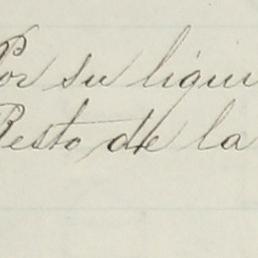 Por su liqui
Resto de la